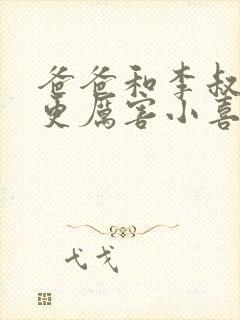 爸爸和李叔
更厉害小喜
弋戈